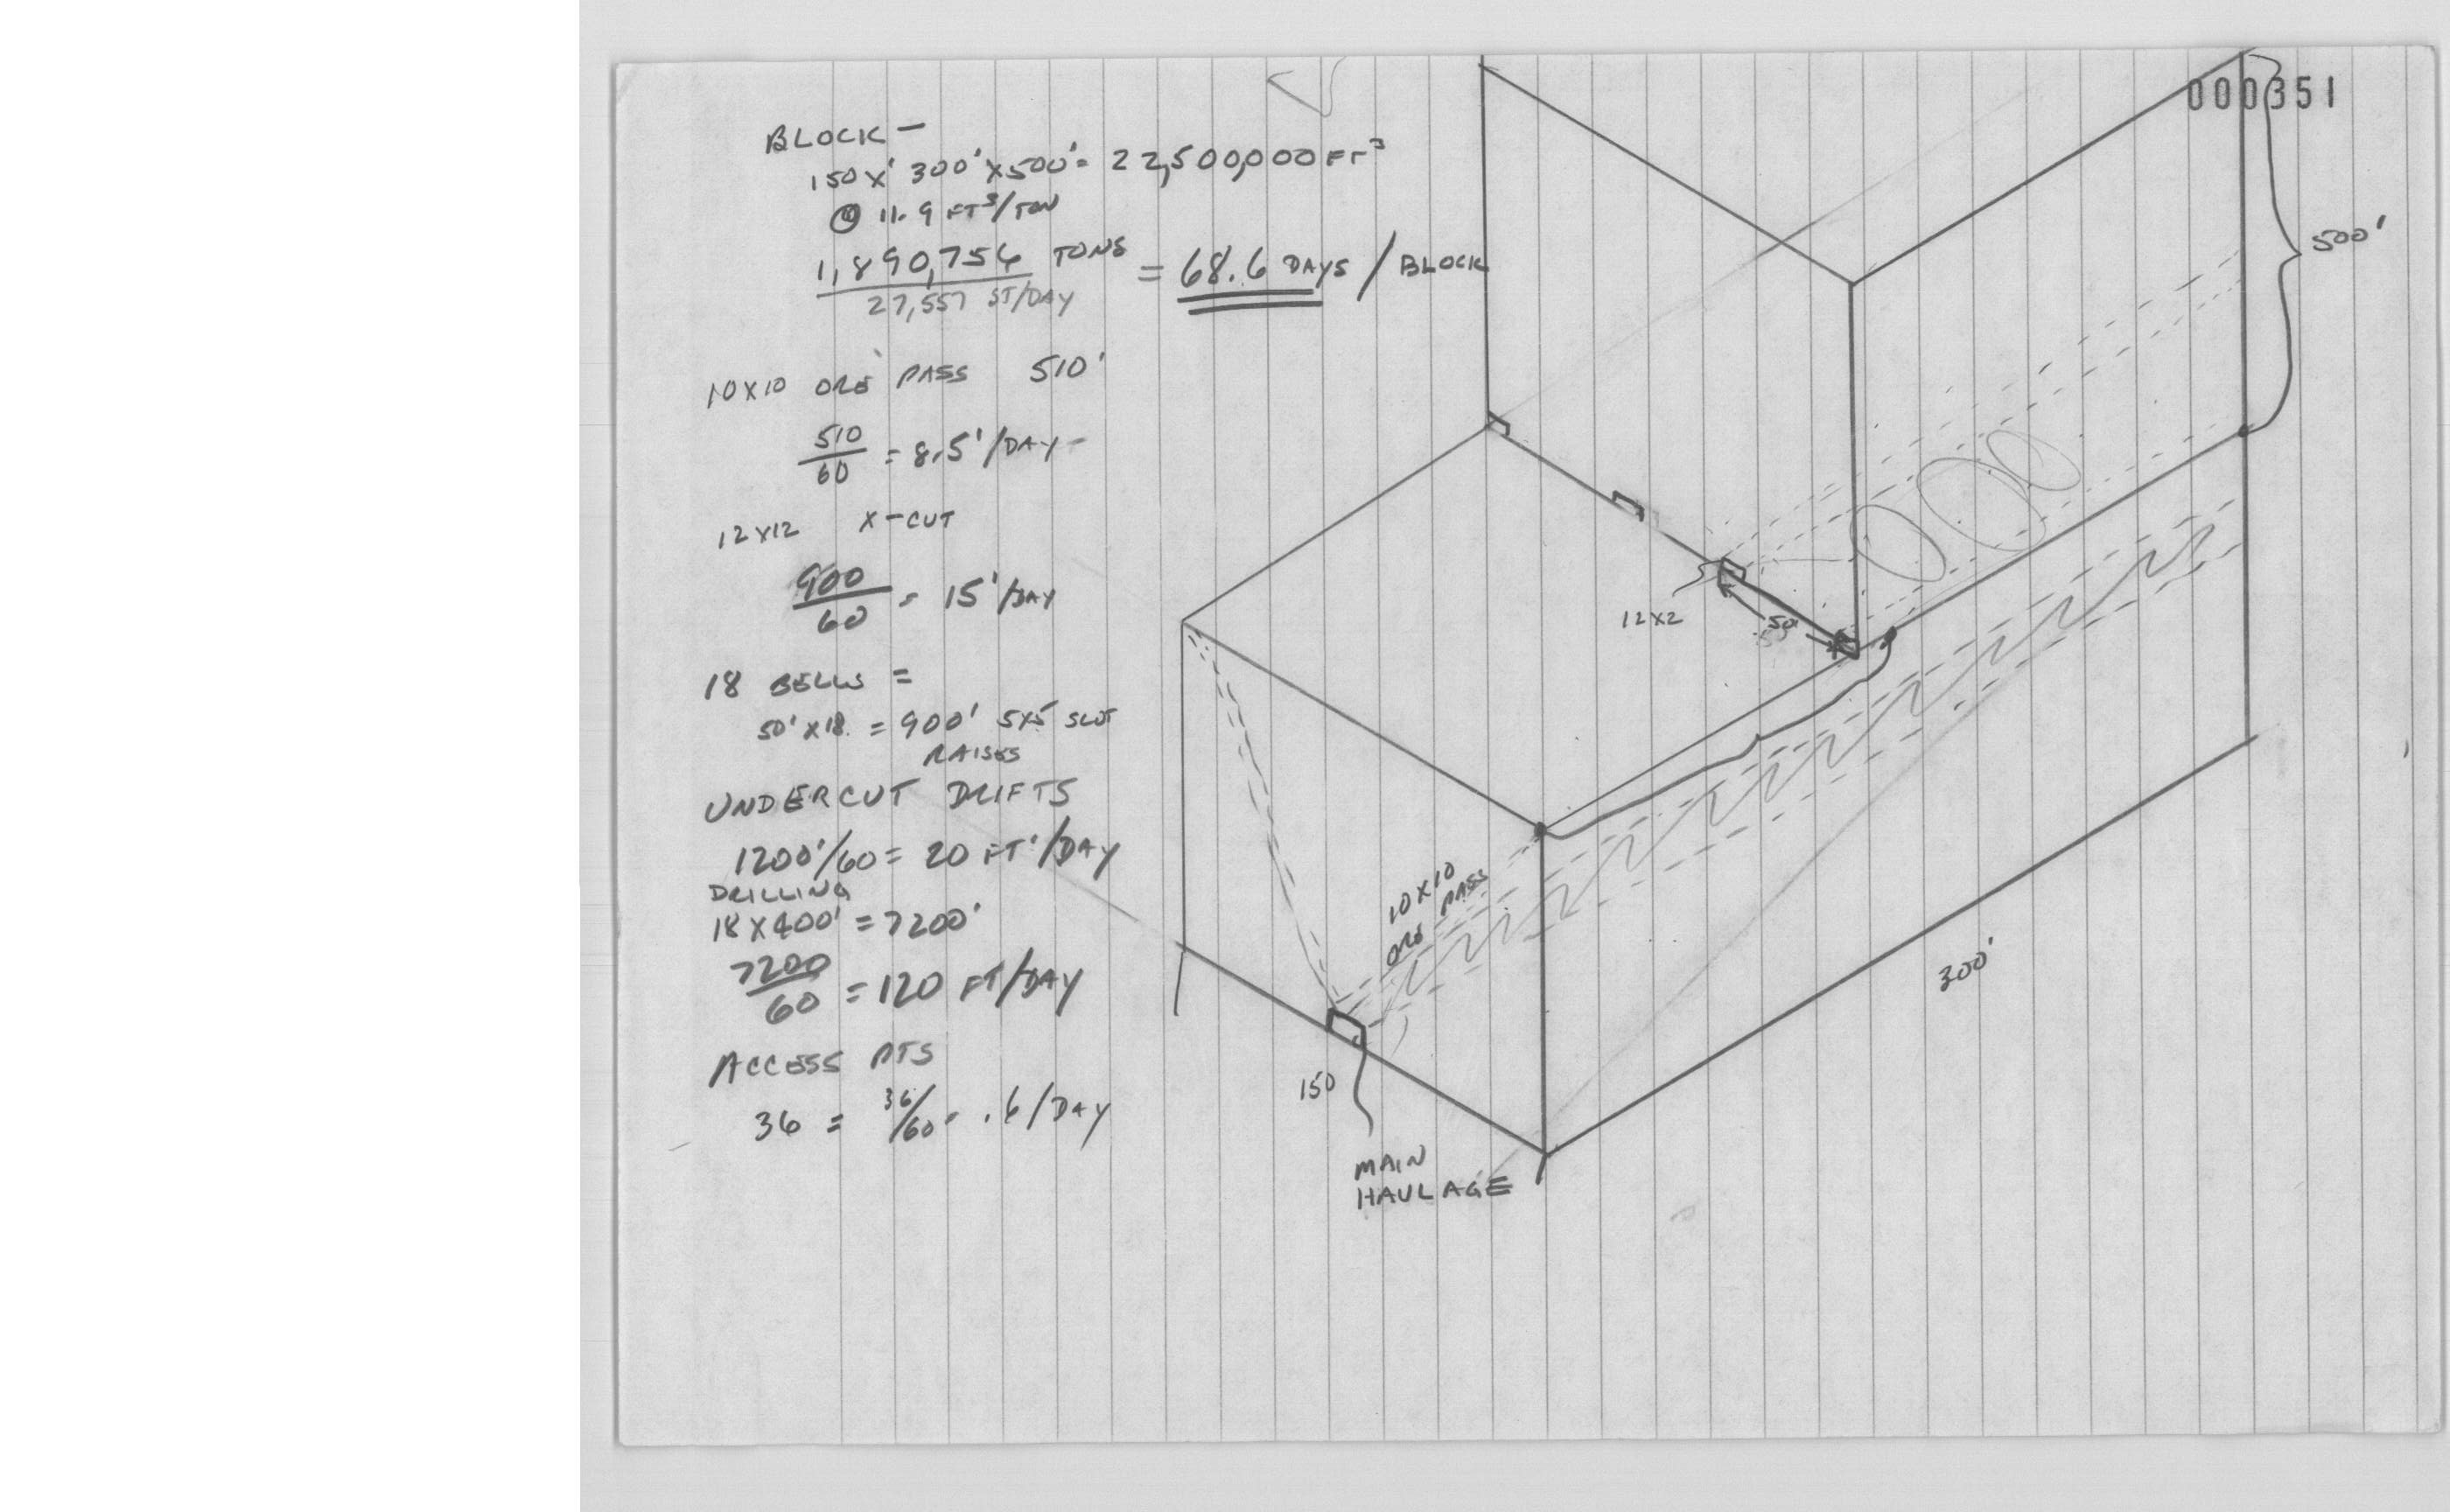 000351
BLOCK —
150 x' 300' x 500' = 22,500,000 FT³
@ 11.9 FT³/TON
1,890,756 TONS
27,557 ST/DAY
= 68.6 DAYS / BLOCK
10x10 ORE PASS 510'
510/60 = 8.5'/DAY -
12x12 X-CUT
900/60 = 15'/DAY
18 BELLS =
50' x 18 = 900' 5x5 SLOT
RAISES
UNDERCUT DRIFTS
1200'/60 = 20 FT'/DAY
DRILLING
18 x 400' = 7200'
7200/60 = 120 FT/DAY
ACCESS PTS
36 = 36/60 = .6/DAY
500'
12x2
50'
10x10
ORE PASS
300'
150
MAIN
HAULAGE